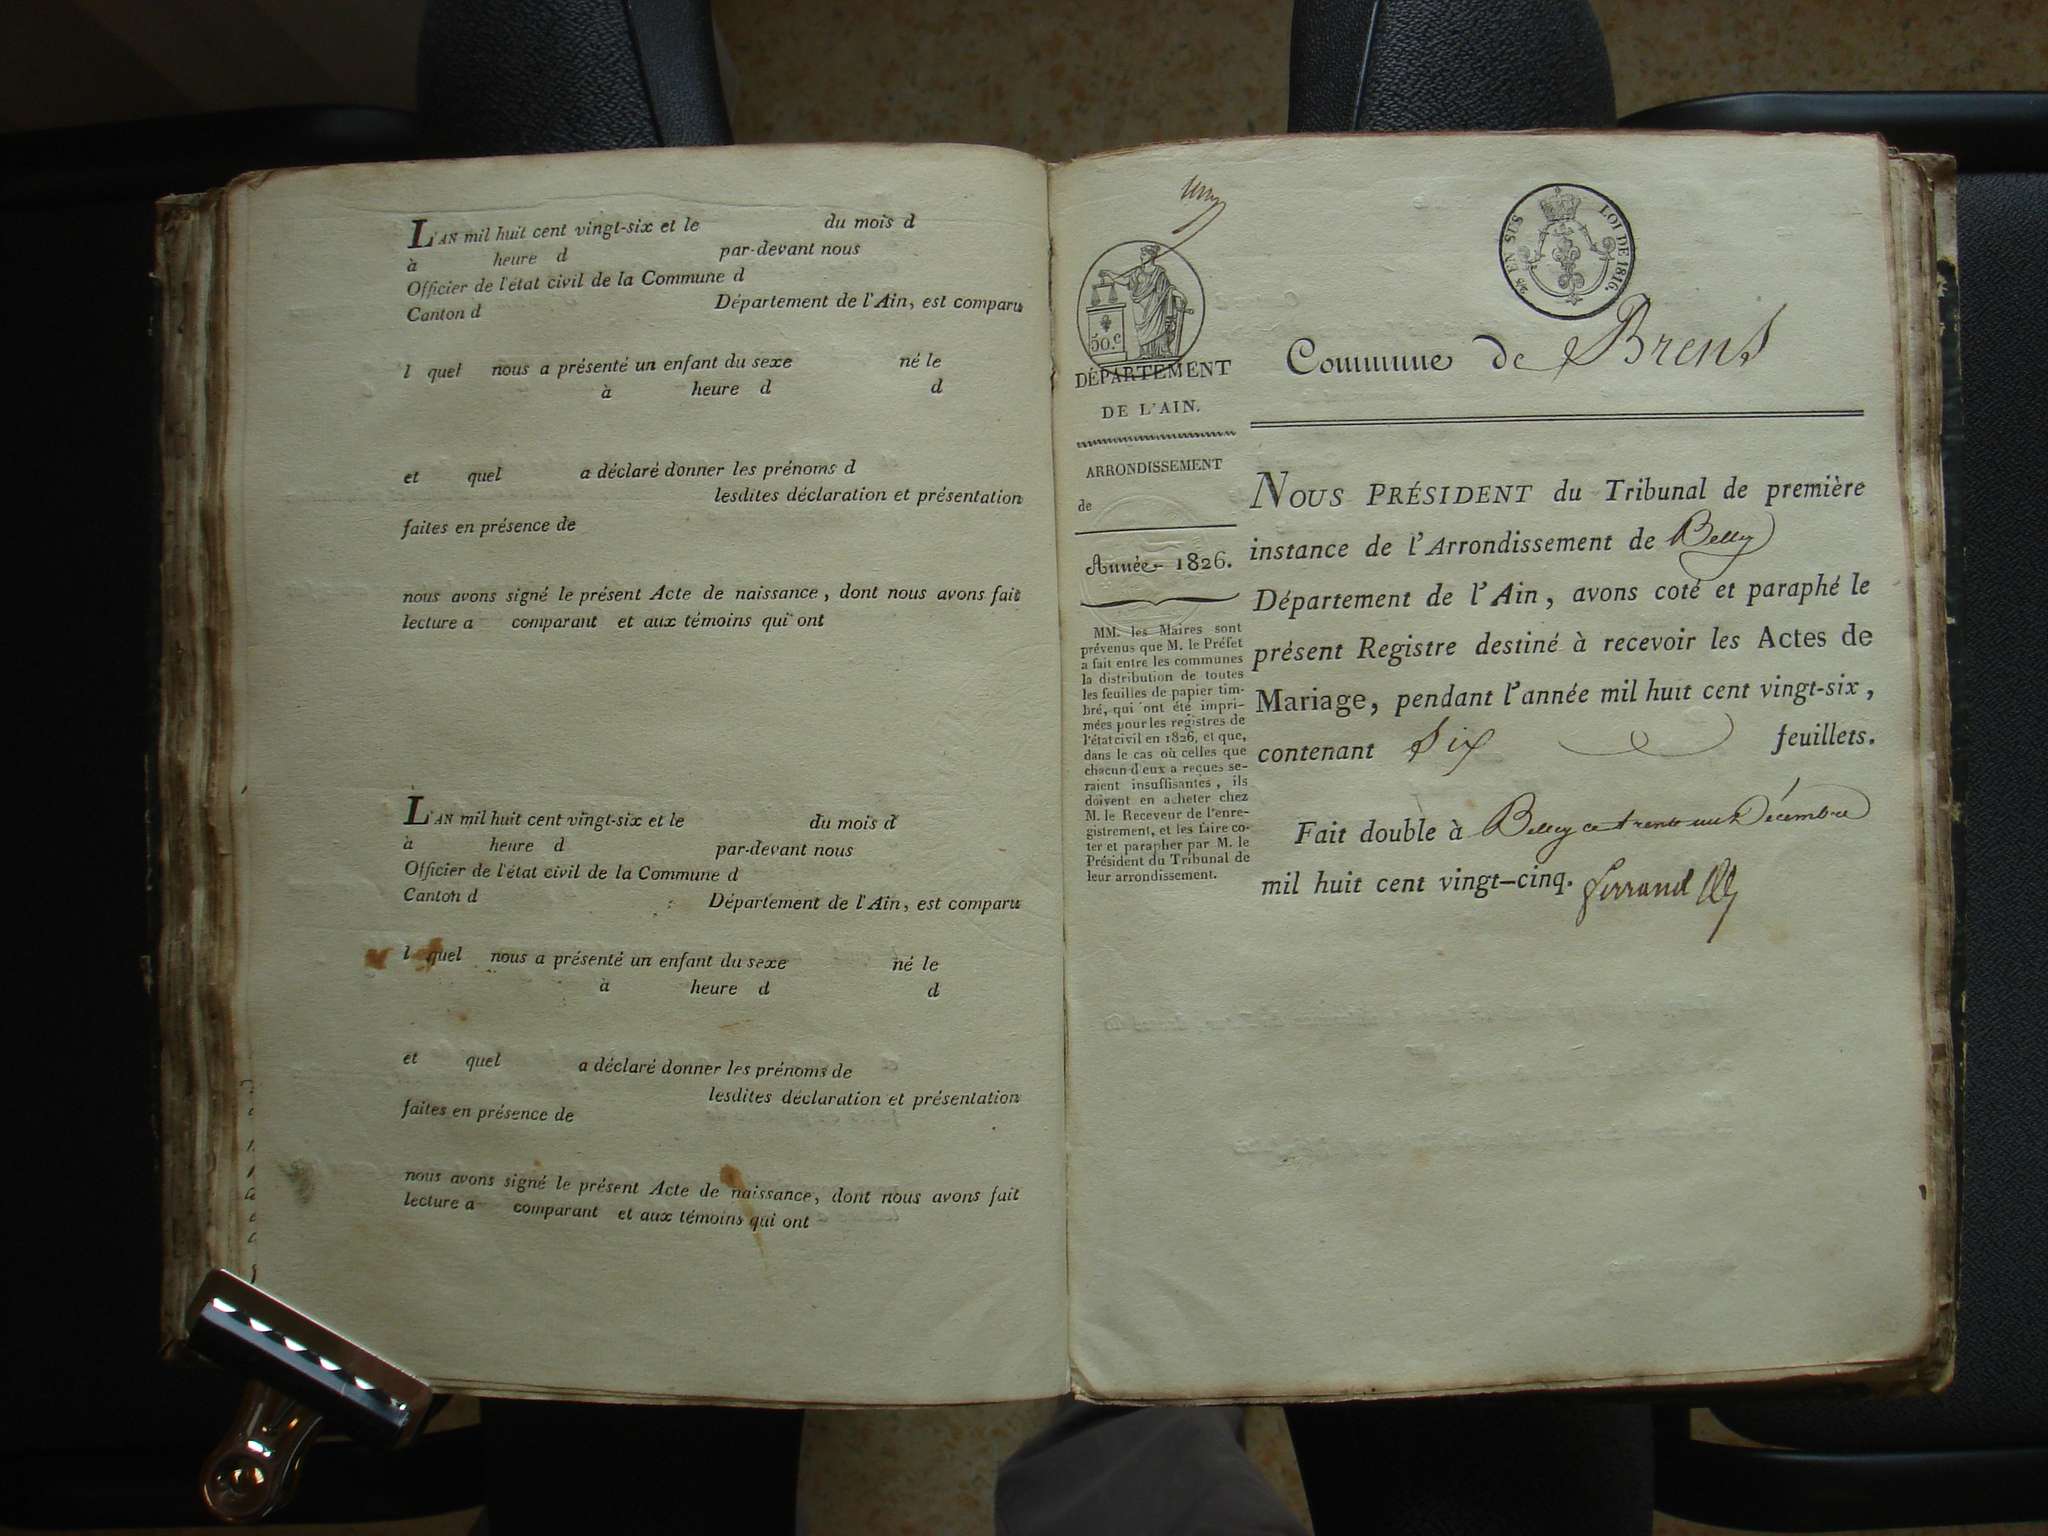 L'AN mil huit cent vingt-six et le du mois d
à heure d par-devant nous
Officier de l'état civil de la Commune d
Canton d Département de l'Ain, est comparu
l quel nous a présenté un enfant du sexe né le
à heure d d
et quel a déclaré donner les prénoms d
lesdites déclaration et présentation
faites en présence de
nous avons signé le présent Acte de naissance, dont nous avons fait
lecture a comparant et aux témoins qui ont
L'AN mil huit cent vingt-six et le du mois d
à heure d par-devant nous
Officier de l'état civil de la Commune d
Canton d Département de l'Ain, est comparu
l quel nous a présenté un enfant du sexe né le
à heure d d
et quel a déclaré donner les prénoms de
lesdites déclaration et présentation
faites en présence de
nous avons signé le présent Acte de naissance, dont nous avons fait
lecture a comparant et aux témoins qui ont
50.c
DÉPARTEMENT
DE L'AIN.
ARRONDISSEMENT
de
Année 1826.
MM. les Maires sont
prévenus que M. le Préfet
a fait entre les communes
la distribution de toutes
les feuilles de papier tim-
bré, qui ont été impri-
mées pour les registres de
l'état civil en 1826, et que,
dans le cas où celles que
chacun d'eux a reçues se-
raient insuffisantes, ils
doivent en acheter chez
M. le Receveur de l'enre-
gistrement, et les faire co-
ter et parapher par M. le
Président du Tribunal de
leur arrondissement.
EN SUS LOI DE 1816.
Commune de Brens
NOUS PRÉSIDENT du Tribunal de première
instance de l'Arrondissement de Belley
Département de l'Ain, avons coté et paraphé le
présent Registre destiné à recevoir les Actes de
Mariage, pendant l'année mil huit cent vingt-six,
contenant Six feuillets.
Fait double à Belley ce trente un Décembre
mil huit cent vingt-cinq. ferrand